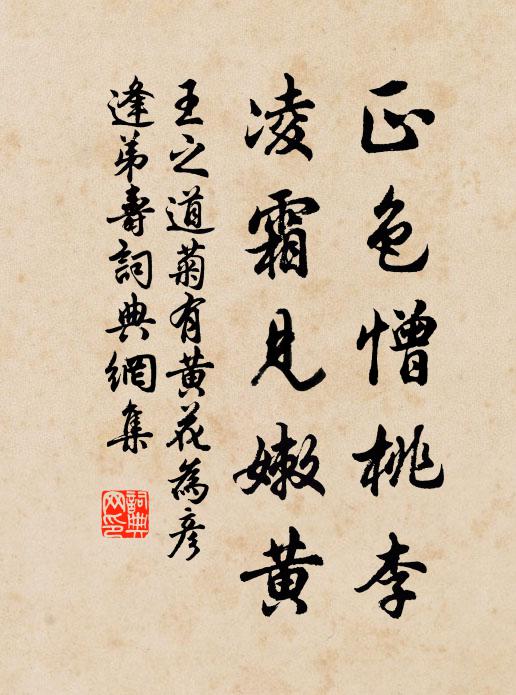 正色憎桃李
凌霜見嫩黄
王之道菊有黄花為彦
逢弟壽詞典網集
詞典
网印